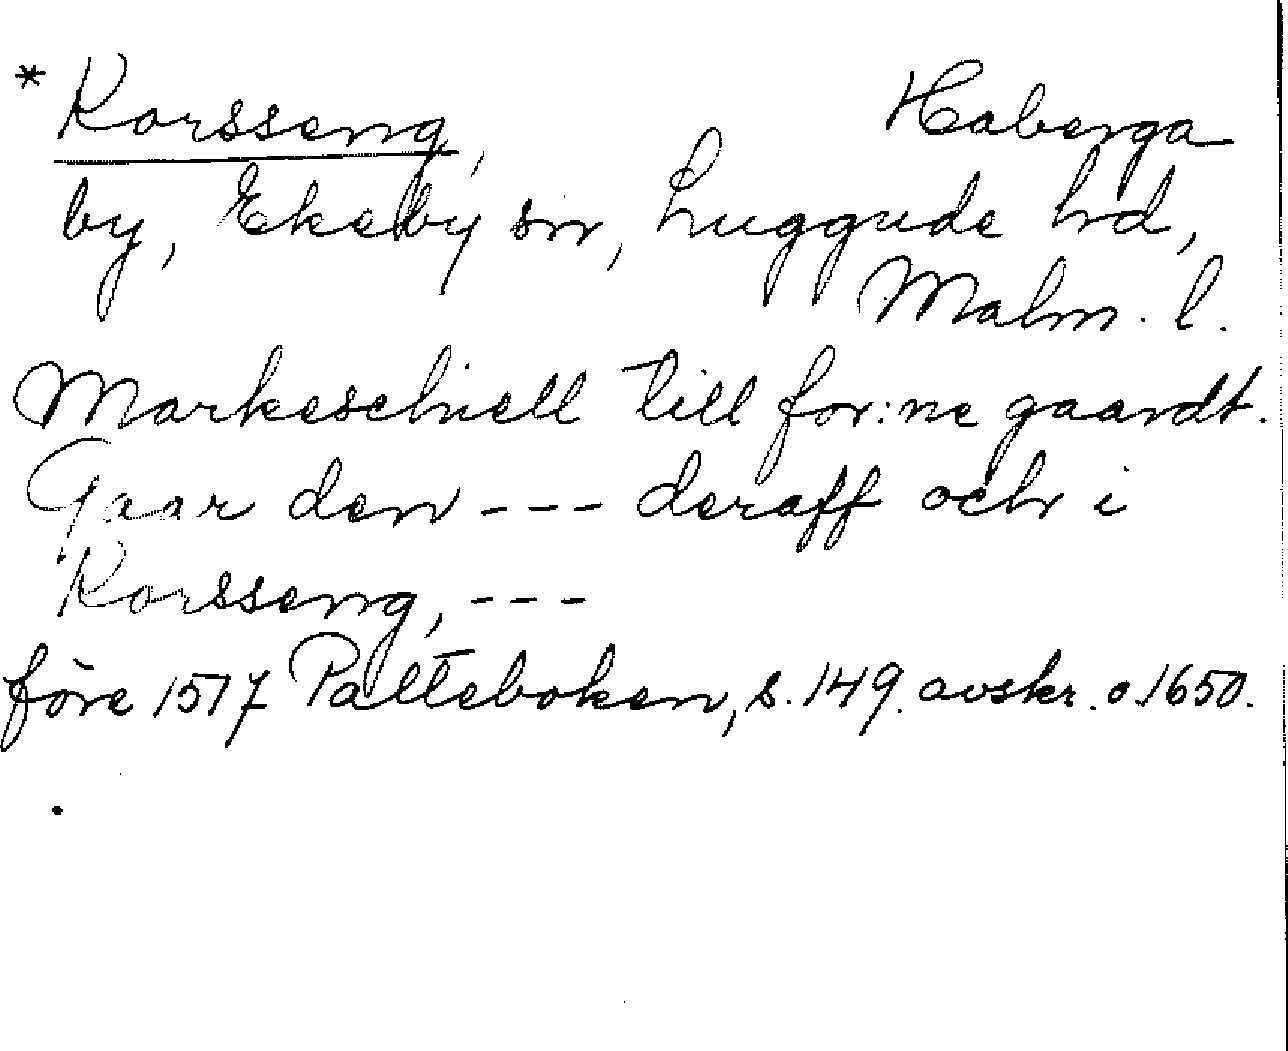 * Korsseng, Haberga
by, Ekeby sn, Luggude hd,
Malm. l.
Markeschiell till for:ne gaardt.
Gaar den --- deraff och i
Korsseng, ---
före 1517 Palteboken, s. 149. avskr. o. 1650.